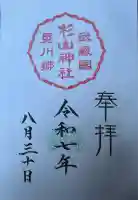 奉拝
武蔵國
杉山神社
星川郷
令和七年
八月三十日